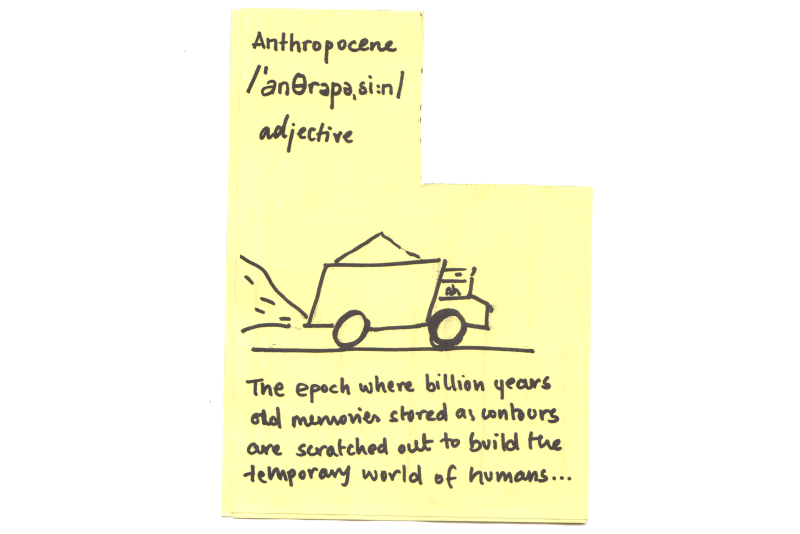 Anthropocene
/ˈənθrəpəˌsi:n/
adjective
The epoch where billion years
old memories stored as contours
are scratched out to build the
temporary world of humans...